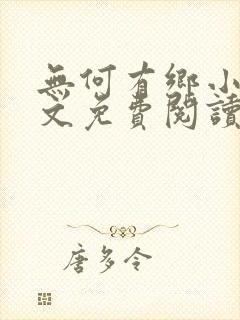 無何有鄉小
文免費閱讀
唐多令